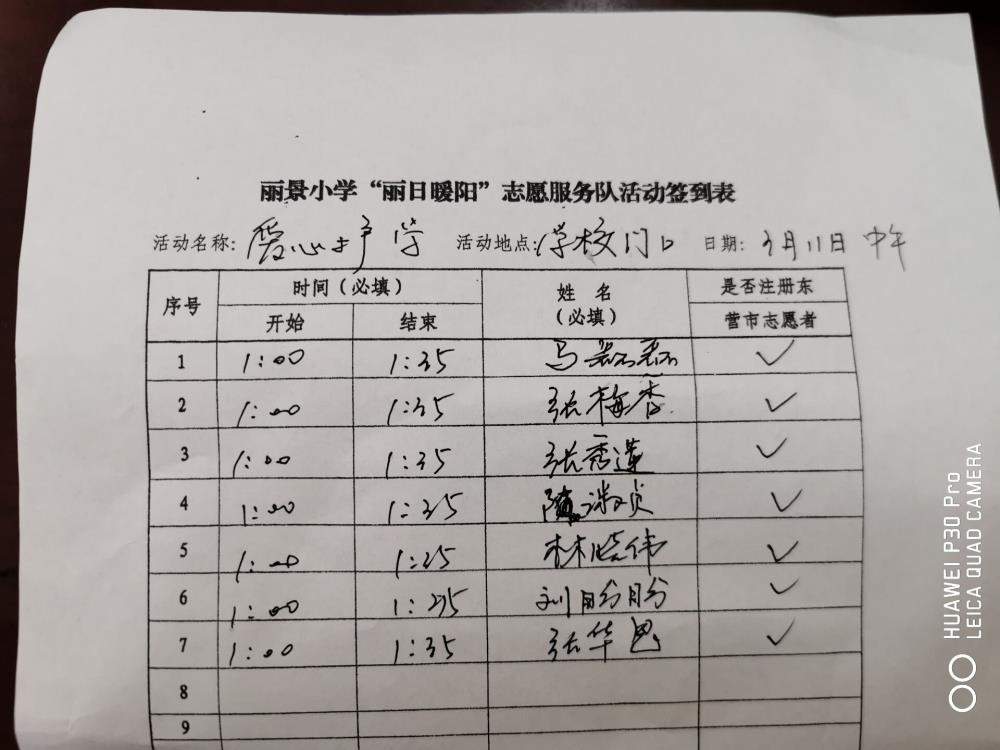 丽景小学“丽日暖阳”志愿服务队活动签到表
活动名称: 爱心护学 活动地点: 学校门口 日期: 3月11日 中午
序号 时间(必填) 姓名(必填) 是否注册东营市志愿者
开始 结束
1 1:00 1:35 马磊磊 ✓
2 1:00 1:35 张梅香 ✓
3 1:00 1:35 张秀莲 ✓
4 1:00 1:35 隋 ✓
5 1:00 1:35 林晓伟 ✓
6 1:00 1:35 刘盼盼 ✓
7 1:00 1:35 张华 ✓
8
9
HUAWEI P30 Pro
LEICA QUAD CAMERA